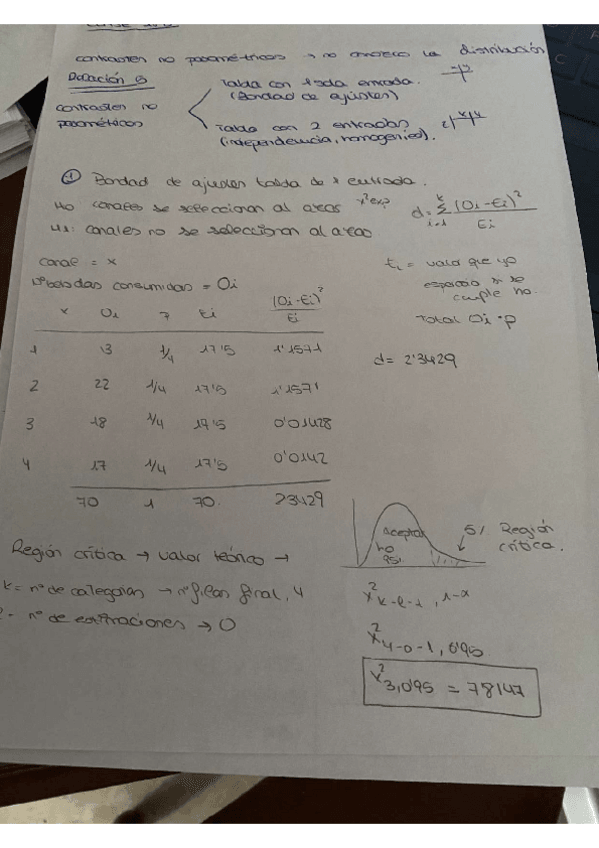 contrastes no paramétricos → no conozco la distribución
Relación 3
contrastes no paramétricos
Tabla con 1 sola entrada.
(Bondad de ajustes)
Tabla con 2 entradas
(independencia, homogenied).
① Bondad de ajustes tabla de 1 entrada.
H0 canales se seleccionan al azar x² exp
H1: canales no se seleccionan al azar
d = Σ (Oi - Ei)² / Ei
k
i=1
canal = x
Nº bebidas consumidas = Oi
Ei = valor que yo
espero si se
cumple H0.
Total Oi · p
x Oi P Ei (Oi - Ei)² / Ei
1 13 1/4 17'5 1'1571
2 22 1/4 17'5 1'1571
3 18 1/4 17'5 0'01428
4 17 1/4 17'5 0'0142
70 1 70. 23429
d = 2'3429
aceptar
H0
95%
5% Región
crítica.
Región crítica → valor teórico →
k = nº de categorías → nº filas final, 4
nº de estimaciones → 0
x² k-l-1, 1-α
x² 4-0-1, 0'95
x² 3,0'95 = 78147